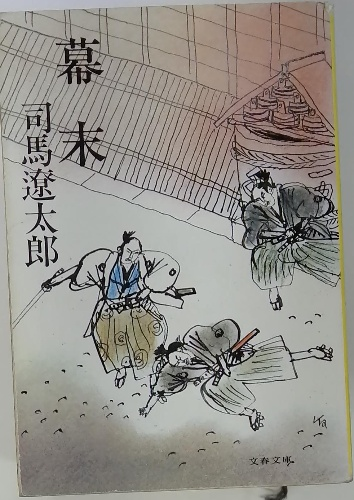 幕末
司馬遼太郎
文春文庫